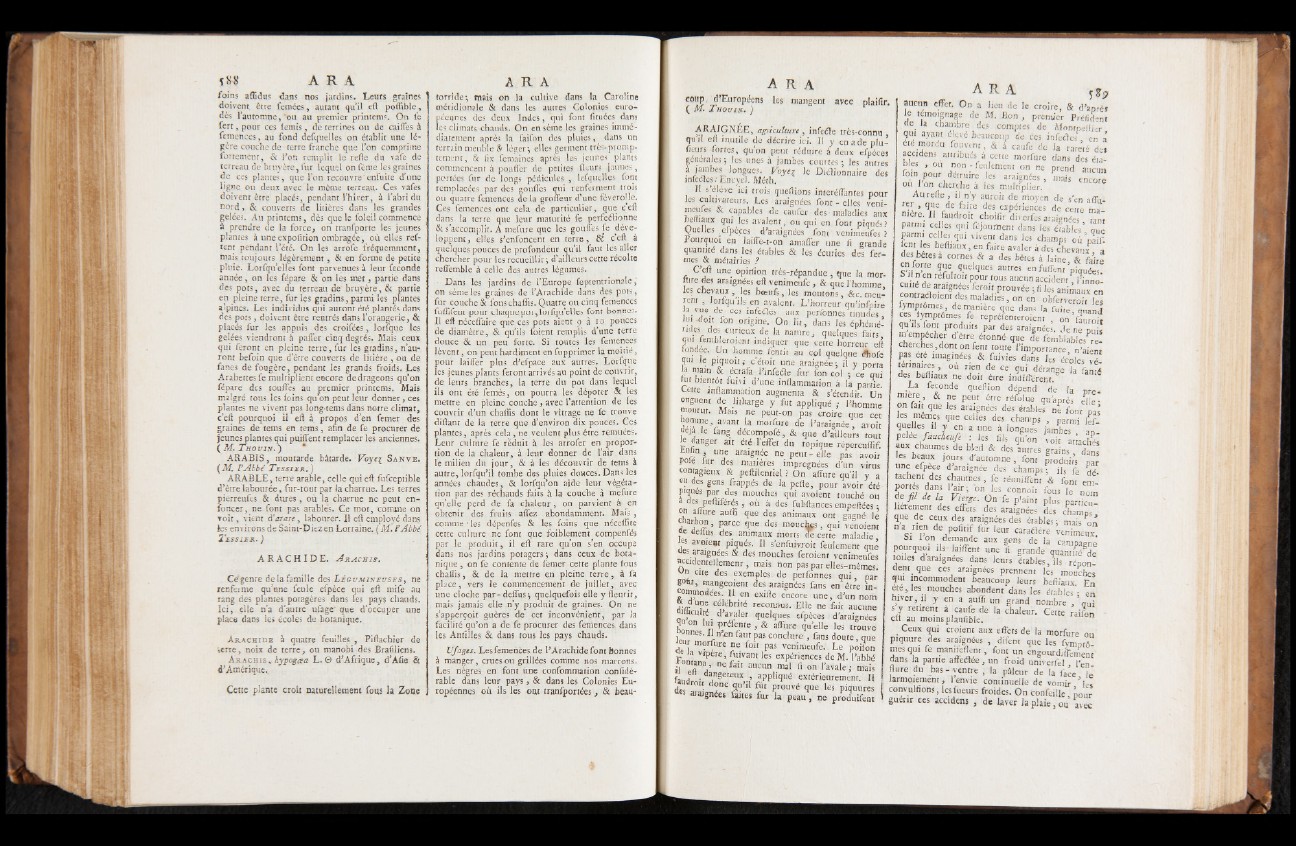 588 A R A
soins assidus dans nos jardins. Leurs graines
doivent être semées, autant qu'il est possible,
dès l'automne, ou au premier printems. On se
sert, pour ces semis, de terrines ou de caisses à
semences, au fond desquelles on établit une lé-
gère couche de terre franche que l'on comprime
fortement, & l'on remplit le reste du vase de
terreau de bruyère, sur lequel on sème les graines
de ces plantes, que l'on recouvre ensuite d'une
ligne ou deux avec le même terreau. Ces vases
doivent être placés, pendant l'hiver, à l'abri du
nord, & couverts de litières dans les grandes
gelées. Au printems, dès que le soleil commence
à prendre de la force, on transporte les jeunes
plantes à une exposition ombragée, où elles res-
tent pendant l'été. On les arrose fréquemment,
mais toujours légèrement, & en forme de petite
pluie. Lorsqu'elles sont parvenues à leur seconde
année, on les sépare & on les met, partie dans
des pots, avec du terreau de bruyère, & partie
en pleine terre, sur les gradins, parmi les plantes
alpines. Les individus qui auront été plantés dans
des pots, doivent être rentrés dans l'orangerie, &
placés sur les appuis des croisées, lorsque les
gelées viendront à passer cinq degrés. Mais ceux
qui seront en pleine terre, sur les gradins, n'au-
ront besoin que d'être couverts de litière, ou de
fanes de fougère, pendant les grands froids. Les
Arabettes se multiplient encore de drageons qu'on
sépare des souches au premier printems. Mais
malgré tous les soins qu'on peut leur donner, ces
plantes ne vivent pas long-tems dans notre climat,
c'est pourquoi il est à propos d'en semer des
graines de tems en tems, afin de se procurer de
jeunes plantes qui puissent remplacer les anciennes.
( M. THOUIN. )
ARABIS, moutarde bâtarde. Voyez SANVE.
( M. l'Abbé TESSIER. )
ARABLE, terre arable, celle qui est susceptible
d'être labourée, sur-tout par la charrue. Les terres
pierreuses & dures, où la charrue ne peut en-
foncer, ne sont pas arables. Ce mot, comme on
voit, vient d'arare, labourer. Il est employé dans
les environs de Saint-Diez en Lorraine. ( M. l'Abbé
TESSIER. )
ARACHIDE. ARACHIS.
Ce genre de la famille des LÉGUMINEUSES, ne
renferme qu'une seule espèce qui est mise au
rang des plantes potagères dans les pays chauds.
Ici, elle n'a d'autre usage que d'occuper une
place dans les écoles de botanique.
ARACHIDE à quatre feuilles, Pistachier de
terre, noix de terre, ou manobi des Brasiliens.
ARACHIS, hypogæa L. ☉ d'Afrique, d'Asie &
d'Amérique.
Cette plante croît naturellement sous la Zone
A R A
torride; mais on la cultive dans la Caroline
méridionale & dans les autres Colonies euro-
péennes des deux Indes, qui sont situées dans
les climats chauds. On en sème les graines immé-
diatement après la saison des pluies, dans un
terrain meuble & léger; elles germent très-promp-
tement, & six semaines après les jeunes plants
commencent à pousser de petites fleurs jaunes,
portées sur de longs pédicules, lesquelles sont
remplacées par des gousses qui renferment trois
ou quatre semences de la grosseur d'une féverolle.
Ces semences ont cela de particulier, que c'est
dans la terre que leur maturité se perfectionne
& s'accomplit. A mesure que les gousses se déve-
loppent, elles s'enfoncent en terre, & c'est à
quelques pouces de profondeur qu'il faut les aller
chercher pour les recueillir; d'ailleurs cette récolte
ressemble à celle des autres légumes.
Dans les jardins de l'Europe septentrionale,
on sème les graines de l'Arachide dans des pots,
sur couche & sous chassis. Quatre ou cinq semences
suffisent pour chaque pot, lorsqu'elles sont bonnes.
Il est nécessaire que ces pots aient 9 à 10 pouces
de diamètre, & qu'ils soient remplis d'une terre
douce & un peu forte. Si toutes les semences
lèvent, on peut hardiment en supprimer la moitié,
pour laisser plus d'espace aux autres. Lorsque
les jeunes plants seront arrivés au point de couvrir,
de leurs branches, la terre du pot dans lequel
ils ont été semés, on pourra les dépoter & les
mettre en pleine couche, avec l'attention de les
couvrir d'un chassis dont le vitrage ne se trouve
distant de la terre que d'environ dix pouces. Ces
plantes, après cela, ne veulent plus être remuées.
Leur culture se réduit à les arroser en propor-
tion de la chaleur, à leur donner de l'air dans
le milieu du jour, & à les découvrir de tems à
autre, lorsqu'il tombe des pluies douces. Dans les
années chaudes, & lorsqu'on aide leur végéta-
tion par des réchauds faits à la couche à mesure
qu'elle perd de sa chaleur, on parvient à en
obtenir des fruits assez abondamment. Mais,
comme les dépenses & les soins que nécessite
cette culture ne sont que foiblement compensés
par le produit, il est rare qu'on s'en occupe
dans nos jardins potagers; dans ceux de bota-
nique, on se contente de semer cette plante sous
chassis, & de la mettre en pleine terre, à sa
place, vers le commencement de juillet, avec
une cloche par-dessus; quelquefois elle y fleurit,
mais jamais elle n'y produit de graines. On ne
s'apperçoit guères de cet inconvénient, par la
facilité qu'on a de se procurer des semences dans
les Antilles & dans tous les pays chauds.
Usages. Les semences de l'Arachide sont bonnes
à manger, crues ou grillées comme nos marrons.
Les nègres en font une consommation considé-
rable dans leur pays, & dans les Colonies Eu-
ropéennes où ils les ont transportées, & beau-
A R A
coup d'Européens les mangent avec plaisir.
( M. THOUIN. )
ARAIGNÉE, agriculture, insecte très-connu,
qu'il est inutile de décrire ici. Il y en a de plu-
sieurs sortes, qu'on peut réduire à deux espèces
générales; les unes à jambes courtes; les autres
à jambes longues. Voyez le Dictionnaire des
insectes. Encycl. Méth.
Il s'élève ici trois questions intéressantes pour
les cultivateurs. Les araignées sont-elles veni-
meuses & capables de causer des maladies aux
bestiaux qui les avalent, ou qui en sont piqués?
Quelles espèces d'araignées sont venimeuses?
Pourquoi en laisse-t-on amasser une si grande
quantité dans les étables & les écuries des fer-
mes & métairies?
C'est une opinion très-répandue, que la mor-
sure des araignées est venimeuse, & que l'homme,
les chevaux, les bœufs, les moutons, &c. meu-
rent, lorsqu'ils en avalent. L'horreur qu'inspire
la vue de ces insectes aux personnes timides,
lui doit son origine. On lit, dans les éphémé-
rides des curieux de la nature, quelques faits,
qui sembleroient indiquer que cette horreur est
fondée. Un homme sentit au col quelque chose
qui le piquoit; c'étoit une araignée; il y porta
la main & écrasa l'insecte sur son col; ce qui
fut bientôt suivi d'une inflammation à la partie.
Cette inflammation augmenta & s'étendit. Un
onguent de litharge y fut appliqué; l'homme
mourut. Mais ne peut-on pas croire que cet
homme, avant la morsure de l'araignée, avoit
déjà le sang décomposé, & que d'ailleurs tout
le danger ait été l'effet du topique repercussif.
Enfin, une araignée ne peut-elle pas avoir
posé sur des matières imprégnées d'un virus
contagieux & pestilentiel? On assure qu'il y a
eu des gens frappés de la peste, pour avoir été
piqués par des mouches qui avoient touché ou
à des pestiférés, ou à des substances empestées;
on assure aussi que des animaux ont gagné le
charbon, parce que des mouches, qui venoient
de dessus des animaux morts de cette maladie,
les avoient piqués. Il s'ensuivroit seulement que
des araignées & des mouches seroient venimeuses
accidentellement, mais non pas par elles-mêmes.
On cite des exemples de personnes qui, par
goût, mangeoient des araignées sans en être in-
commodées. Il en existe encore une, d'un nom
& d'une célébrité reconnus. Elle ne fait aucune
difficulté d'avaler quelques espèces d'araignées
qu'on lui présente, & assure qu'elle les trouve
bonnes. Il n'en faut pas conclure, sans doute, que
leur morsure ne soit pas venimeuse. Le poison
de la vipère, suivant les expériences de M. l'abbé
Fontana, ne fait aucun mal si on l'avale; mais
il est dangereux, appliqué extérieurement. Il
faudroit donc qu'il fût prouvé que les piquures
des araignées faites sur la peau, ne produisent
A R A 589
aucun effet. On a lieu de le croire, & d'après
le témoignage de M. Bon, premier Président
de la chambre des comptes de Montpellier,
qui ayant élevé beaucoup de ces insectes, en a
été mordu souvent, & à cause de la rareté des
accidens attribués à cette morsure dans des éta-
bles, où non-seulement on ne prend aucun
soin pour détruire les araignées, mais encore
où l'on cherche à les multiplier.
Au reste, il n'y auroit de moyen de s'en assu-
rer, que de faire des expériences de cette ma-
nière. Il faudroit choisir diverses araignées, tant
parmi celles qui séjournent dans les étables, que
parmi celles qui vivent dans les champs où pais-
sent les bestiaux, en faire avaler à des chevaux, à
des bêtes à cornes & à des bêtes à laine, & faire
en sorte que quelques autres en fussent piquées.
S'il n'en résultoit pour tous aucun accident, l'inno-
cuité de araignées seroit prouvée; si les animaux en
contractoient des maladies, on en observeroit les
symptômes, de manière que dans la suite, quand
ces symptômes se représenteroient, on sauroit
qu'ils sont produits par des araignées. Je ne puis
m'empêcher d'être étonné que de semblables re-
cherches, dont on sent toute l'importance, n'aient
pas été imaginées & suivies dans les écoles vé-
térinaires, où rien de ce qui dérange la santé
des bestiaux ne doit être indifférent.
La seconde question dépend de la pre-
mière, & ne peut être résolue qu'après elle;
on sait que les araignées des étables ne sont pas
les mêmes que celles des champs, parmi les-
quelles il y en a une à longues jambes, ap-
pelée faucheuse: les fils qu'on voit attachés
aux chaumes de bled & des autres grains, dans
les beaux jours d'automne, sont produits par
une espèce d'araignée des champs; ils se dé-
tachent des chaumes, se réunissent & sont em-
portés dans l'air; on les connoît sous le nom
de fil de la Vierge. On se plaint plus particu-
lièrement des effets des araignées des champs,
que de ceux des araignées des étables; mais on
n'a rien de positif sur leur caractère venimeux.
Si l'on demande aux gens de la campagne
pourquoi ils laissent une si grande quantité de
toiles d'araignées dans leurs étables, ils répon-
dent que ces araignées prennent les mouches
qui incommodent beaucoup leurs bestiaux. En
été, les mouches abondent dans les étables; en
hiver, il y en a aussi un grand nombre, qui
s'y retirent à cause de la chaleur. Cette raison
est au moins plausible.
Ceux qui croient aux effets de la morsure ou
piquure des araignées, disent que les symptô-
mes qui se manifestent, sont un engourdissement
dans la partie affectée, un froid universel, l'en-
flure du bas-ventre, la pâleur de la face, le
larmoiement, l'envie continuelle de vomir, les
convulsions, les sueurs froides. On conseille, pour
guérir ces accidens, de laver la plaie, ou avec